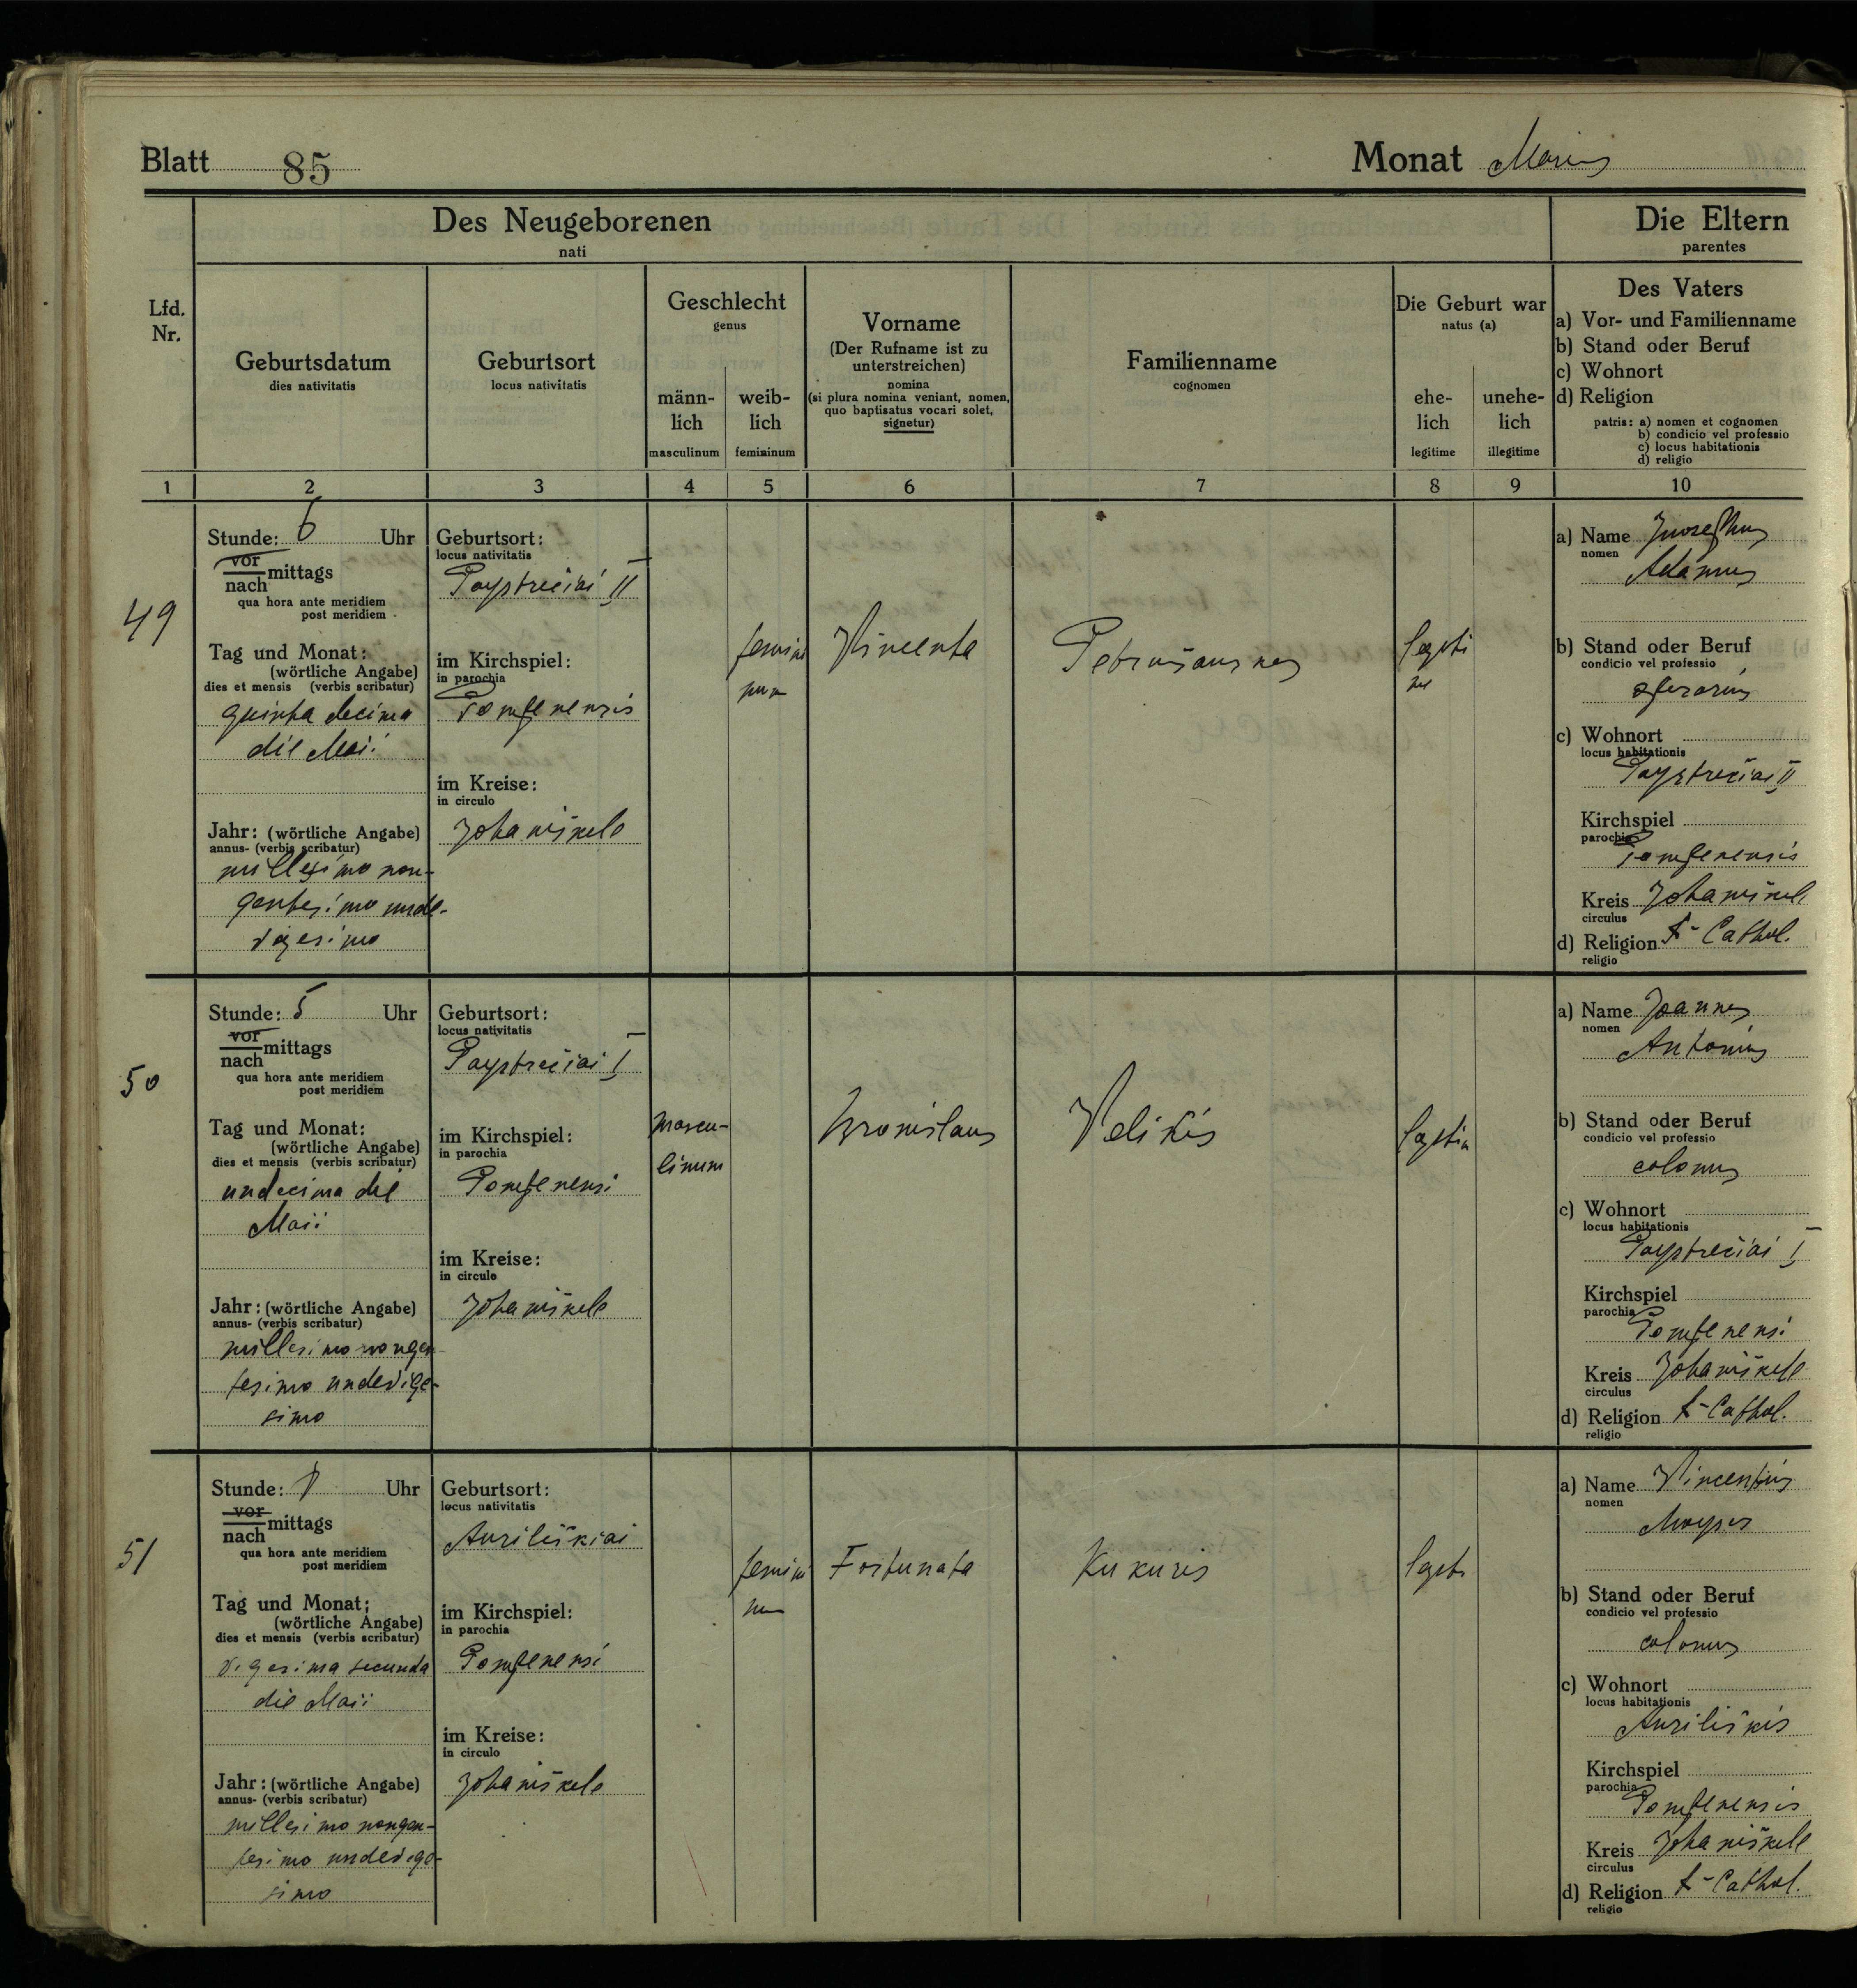 Blatt 85
Monat Maius
Des Neugeborenen
nati
Die Eltern
parentes
Lfd.
Nr.
Geburtsdatum
dies nativitatis
Geburtsort
locus nativitatis
Geschlecht
genus
männ-
lich
masculinum
weib-
lich
femininum
Vorname
(Der Rufname ist zu
unterstreichen)
nomina
(si plura nomina veniant, nomen,
quo baptisatus vocari solet,
signetur)
Familienname
cognomen
Die Geburt war
natus (a)
ehe-
lich
legitime
unehe-
lich
illegitime
Des Vaters
a) Vor- und Familienname
b) Stand oder Beruf
c) Wohnort
d) Religion
patris: a) nomen et cognomen
b) condicio vel professio
c) locus habitationis
d) religio
1 2 3 4 5 6 7 8 9 10
49
Stunde: 6 Uhr
vor
nach mittags
qua hora ante meridiem
post meridiem
Tag und Monat:
(wörtliche Angabe)
dies et mensis (verbis scribatur)
quinta decima
die Maii
Jahr: (wörtliche Angabe)
annus- (verbis scribatur)
millesimo non-
gentesimo unde-
vigesimo
Geburtsort:
locus nativitatis
Paystrečiai II
im Kirchspiel:
in parochia
Pompenensis
im Kreise:
in circulo
Johaniškele
femini
num
Vincenta
Petrušauskas
legiti
me
a) Name Josephus
nomen
Adamus
b) Stand oder Beruf
condicio vel professio
operarius
c) Wohnort
locus habitationis
Paystrečiai II
Kirchspiel
parochia
Pompenensis
Kreis Johaniškele
circulus
d) Religion r-Cathol.
religio
50
Stunde: 5 Uhr
vor
nach mittags
qua hora ante meridiem
post meridiem
Tag und Monat:
(wörtliche Angabe)
dies et mensis (verbis scribatur)
undecima die
Maii
Jahr: (wörtliche Angabe)
annus- (verbis scribatur)
millesimo nongen
tesimo undevige-
simo
Geburtsort:
locus nativitatis
Paystrečiai I
im Kirchspiel:
in parochia
Pompenensi
im Kreise:
in circulo
Johaniškele
mascu-
linum
Bronislaus
Velikis
a) Name Joannes
nomen
Antonius
b) Stand oder Beruf
condicio vel professio
colonus
c) Wohnort
locus habitationis
Paystrečiai I
Kirchspiel
parochia
Pompenensi
Kreis Johaniškele
circulus
d) Religion r-Cathol.
religio
51
Stunde: Uhr
vor
nach mittags
qua hora ante meridiem
post meridiem
Tag und Monat;
(wörtliche Angabe)
dies et mensis (verbis scribatur)
vigesima secunda
die Maii
Jahr: (wörtliche Angabe)
annus- (verbis scribatur)
millesimo nongen-
tesimo undevige-
simo
Geburtsort:
locus nativitatis
Auriliškiai
im Kirchspiel:
in parochia
Pompenensi
im Kreise:
in circulo
Johaniškele
femini
num
Fortunata
Kukuris
legiti
a) Name Vincentius
nomen
Moyses
b) Stand oder Beruf
condicio vel professio
colonus
c) Wohnort
locus habitationis
Auriliškis
Kirchspiel
parochia
Pompenensis
Kreis Johaniškele
circulus
d) Religion r-Cathol.
religio